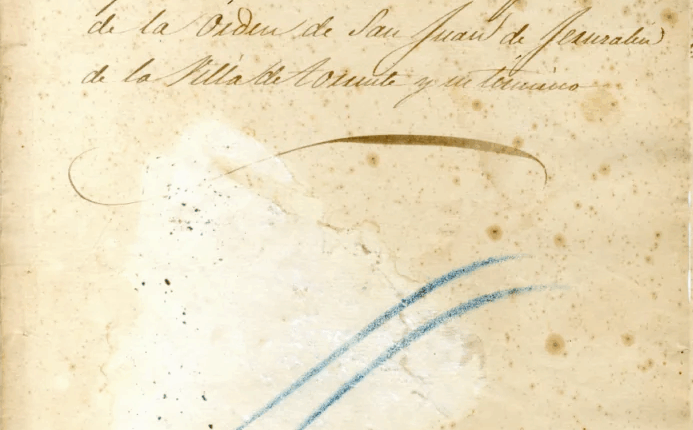 de la Orden de San Juan de Jerusalen
de la Villa de Torrente y su término